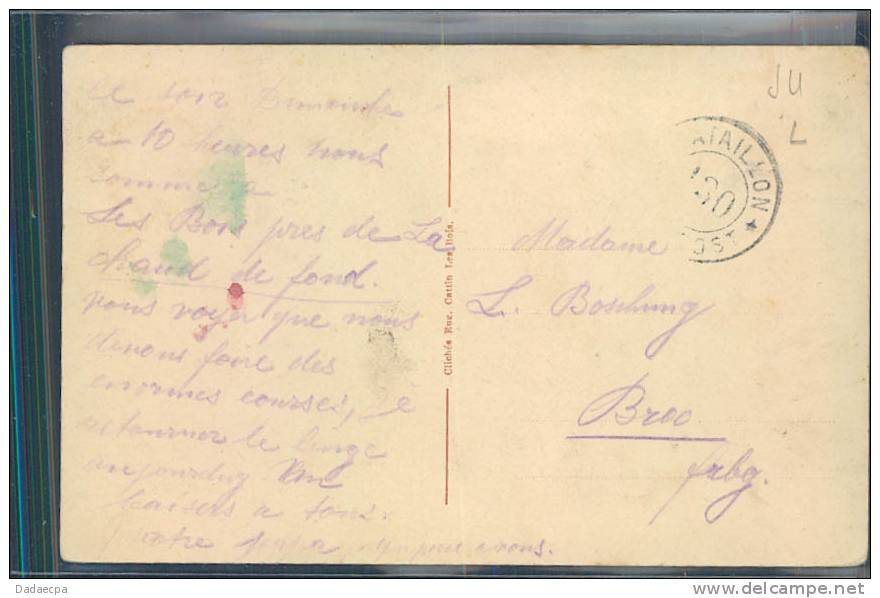 ce soir Dimanche
a 10 heures nous
somme a
Les Bois pres de La
chaud de fond.
vous voyer que nous
devons faire des
enormes courses, é
retourner le linge
aujourduy
baisers a tous.
votre papa a vous.
Clichés Eug. Cattin Les Bois.
JU
L
BATAILLON
130
POST
Madame
L. Boschung
Broc
frbg.
Dadaecpa
www.delcampe.net